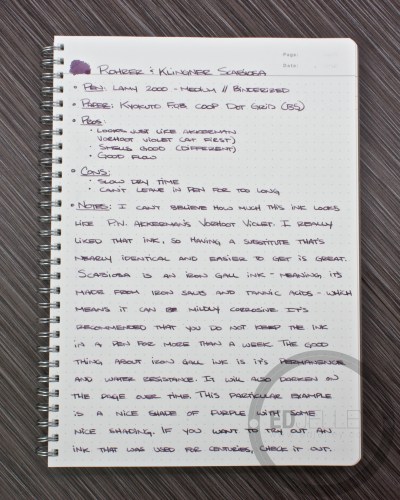 Page:
Rohrer & Klingner Scabiosa
Date:
• Pen: Lamy 2000 - Medium // Binderized
• Paper: Kyokuto F.O.B COOP Dot Grid (B5)
• Pros:
• Looks just like Akkerman
Vorhoot Violet (at first)
• Smells good (different)
• Good flow
• Cons:
• Slow dry time
• Can't leave in pen for too long
• Notes: I can't believe how much this ink looks
like P.W. Akkerman's Vorhoot Violet. I really
liked that ink, so having a substitute that's
nearly identical and easier to get is great.
Scabiosa is an iron gall ink - meaning it's
made from iron salts and tannic acids - which
means it can be mildly corrosive. It's
recommended that you do not keep the ink
in a pen for more than a week. The good
thing about iron gall ink is it's permanence
and water resistance. It will also darken on
the page over time. This particular example
is a nice shade of purple with some
nice shading. If you want to try out an
ink that was used for centuries, check it out.
ED